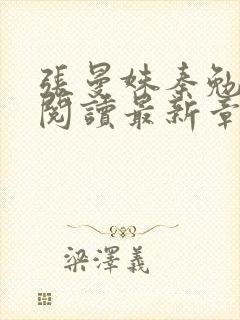 張曼姝秦勉
閱讀最新章
梁澤義